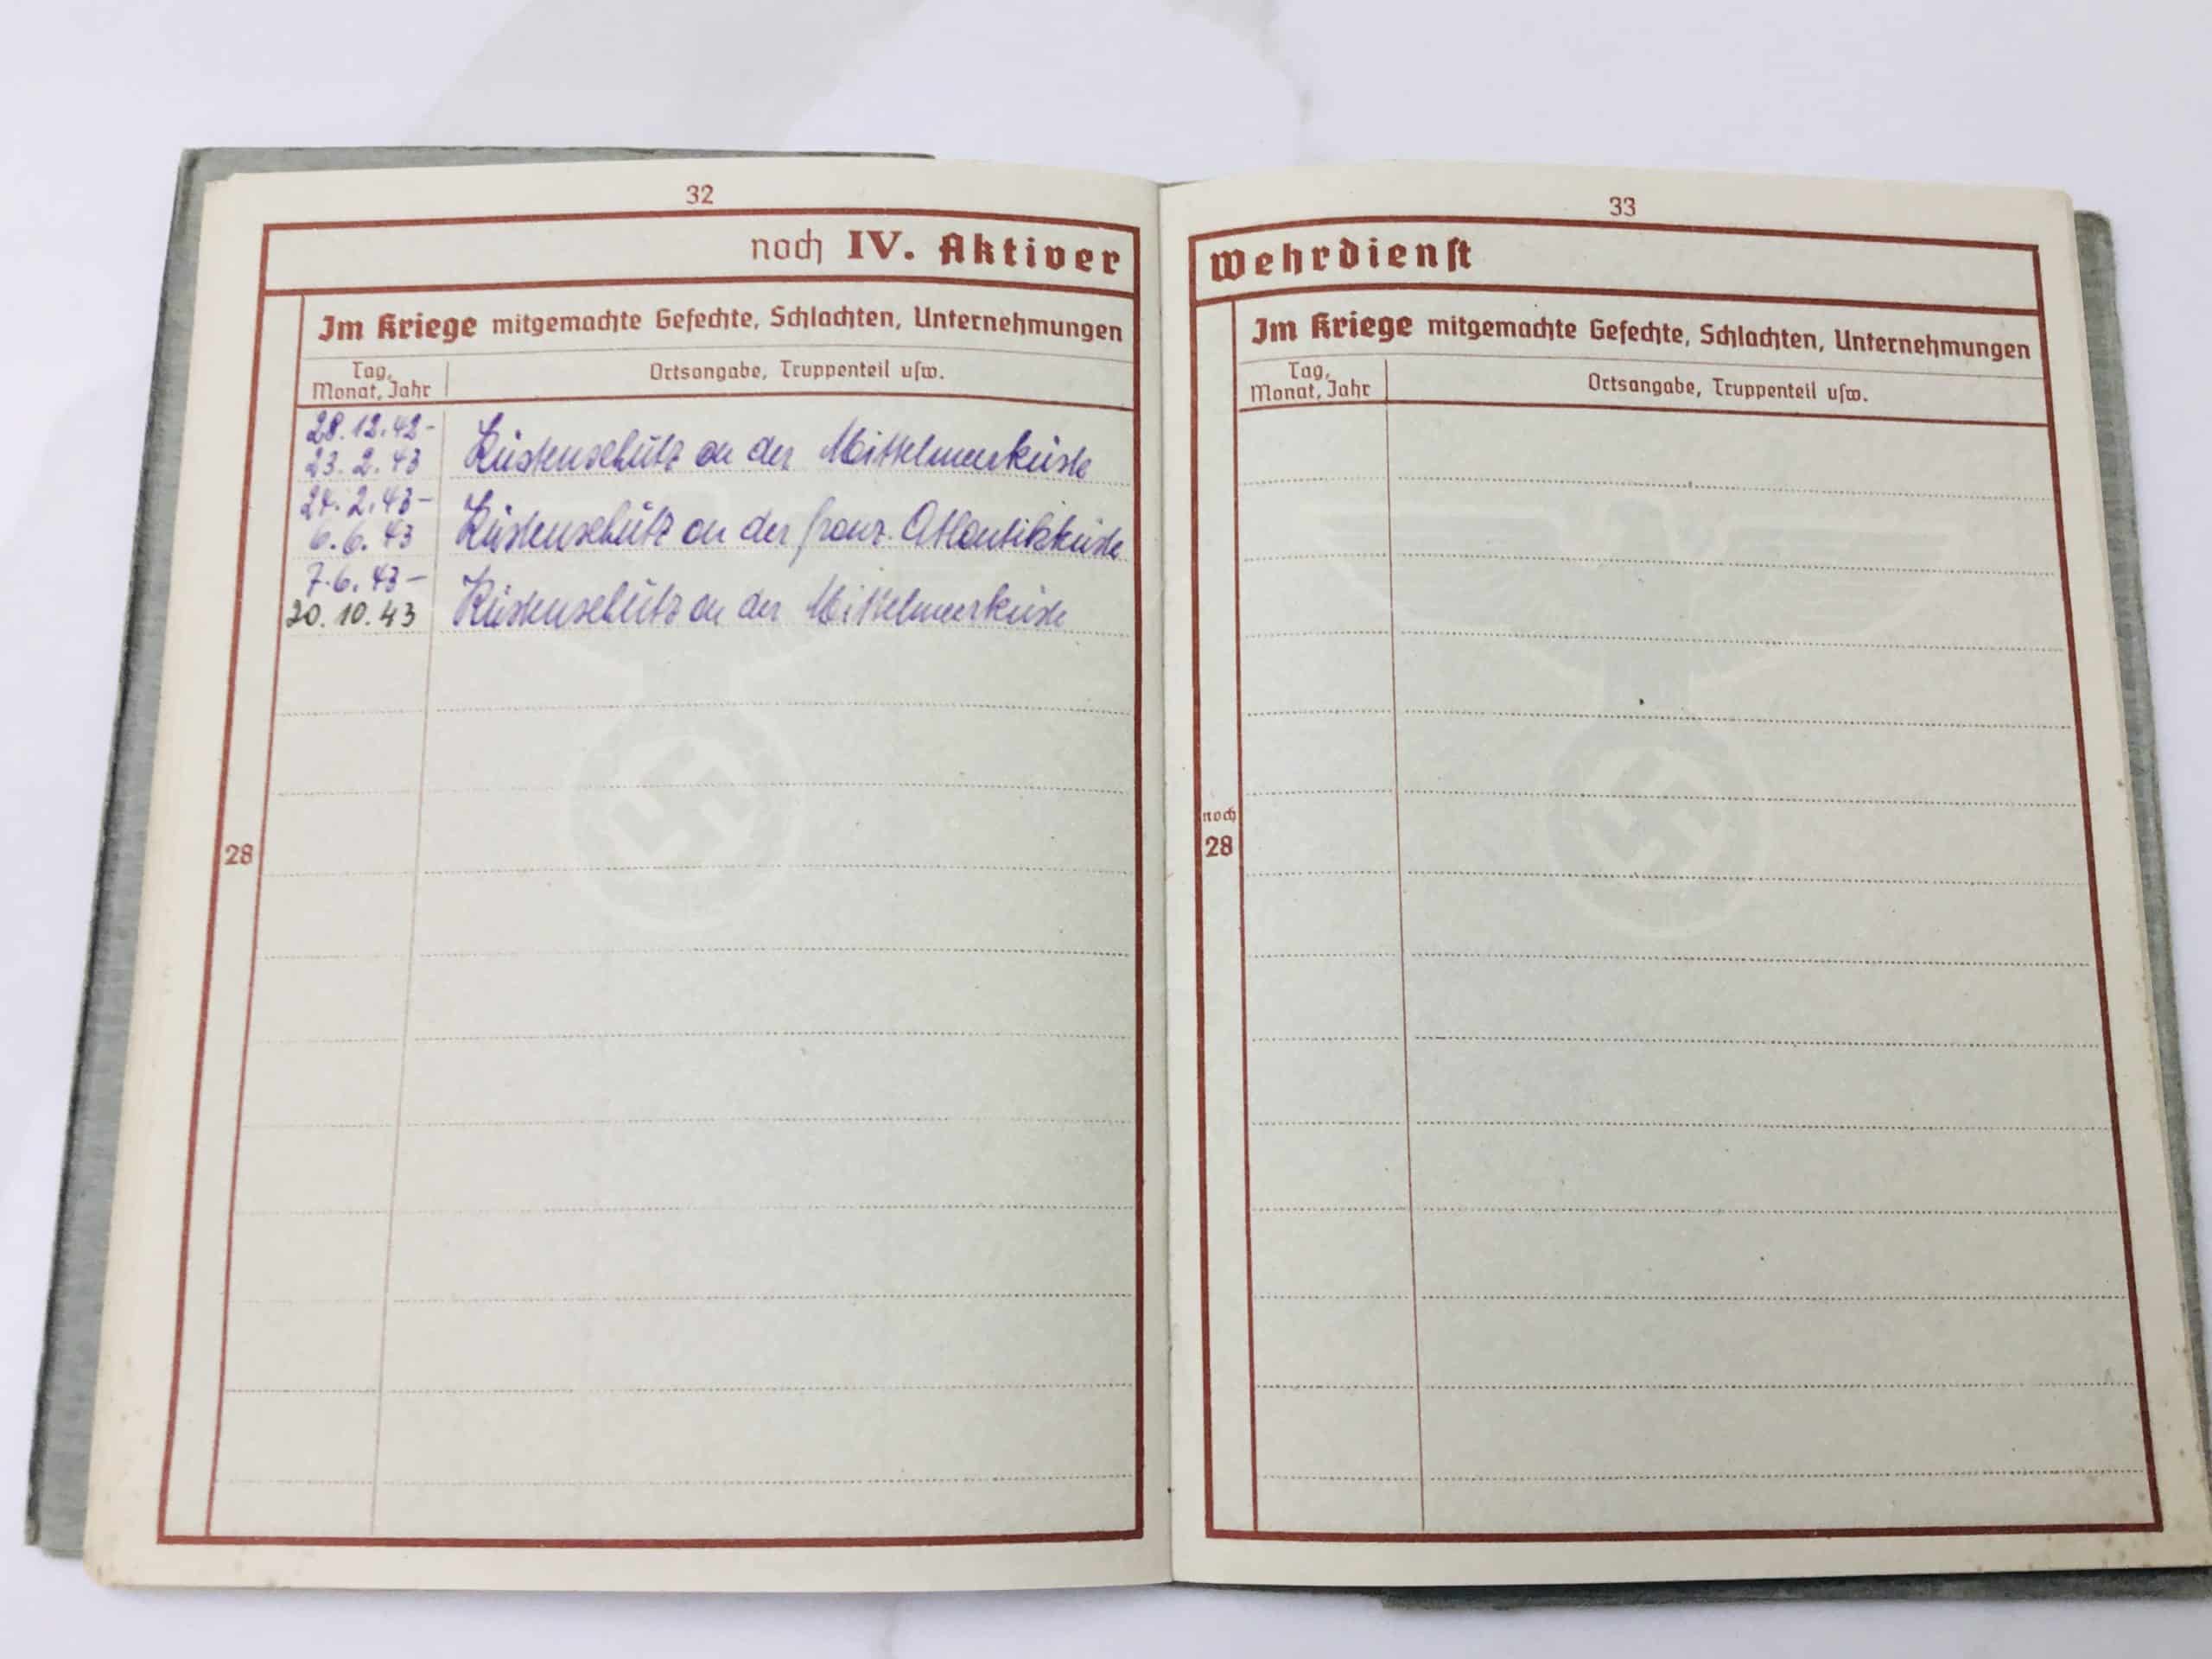 32
noch IV. Aktiver
Im Kriege mitgemachte Gefechte, Schlachten, Unternehmungen
Tag, Monat, Jahr
Ortsangabe, Truppenteil usw.
28.12.42-
23.2.43 Küstenschutz an der Mittelmeerküste
24.2.43-
6.6.43 Küstenschutz an der franz. Atlantikküste
7.6.43-
20.10.43 Küstenschutz an der Mittelmeerküste
28
33
Wehrdienst
Im Kriege mitgemachte Gefechte, Schlachten, Unternehmungen
Tag, Monat, Jahr
Ortsangabe, Truppenteil usw.
noch
28